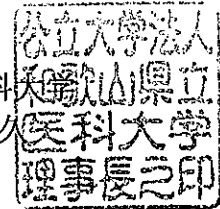 公立大学法人
科大学
和歌山県立
久
医科大学
理事長之印